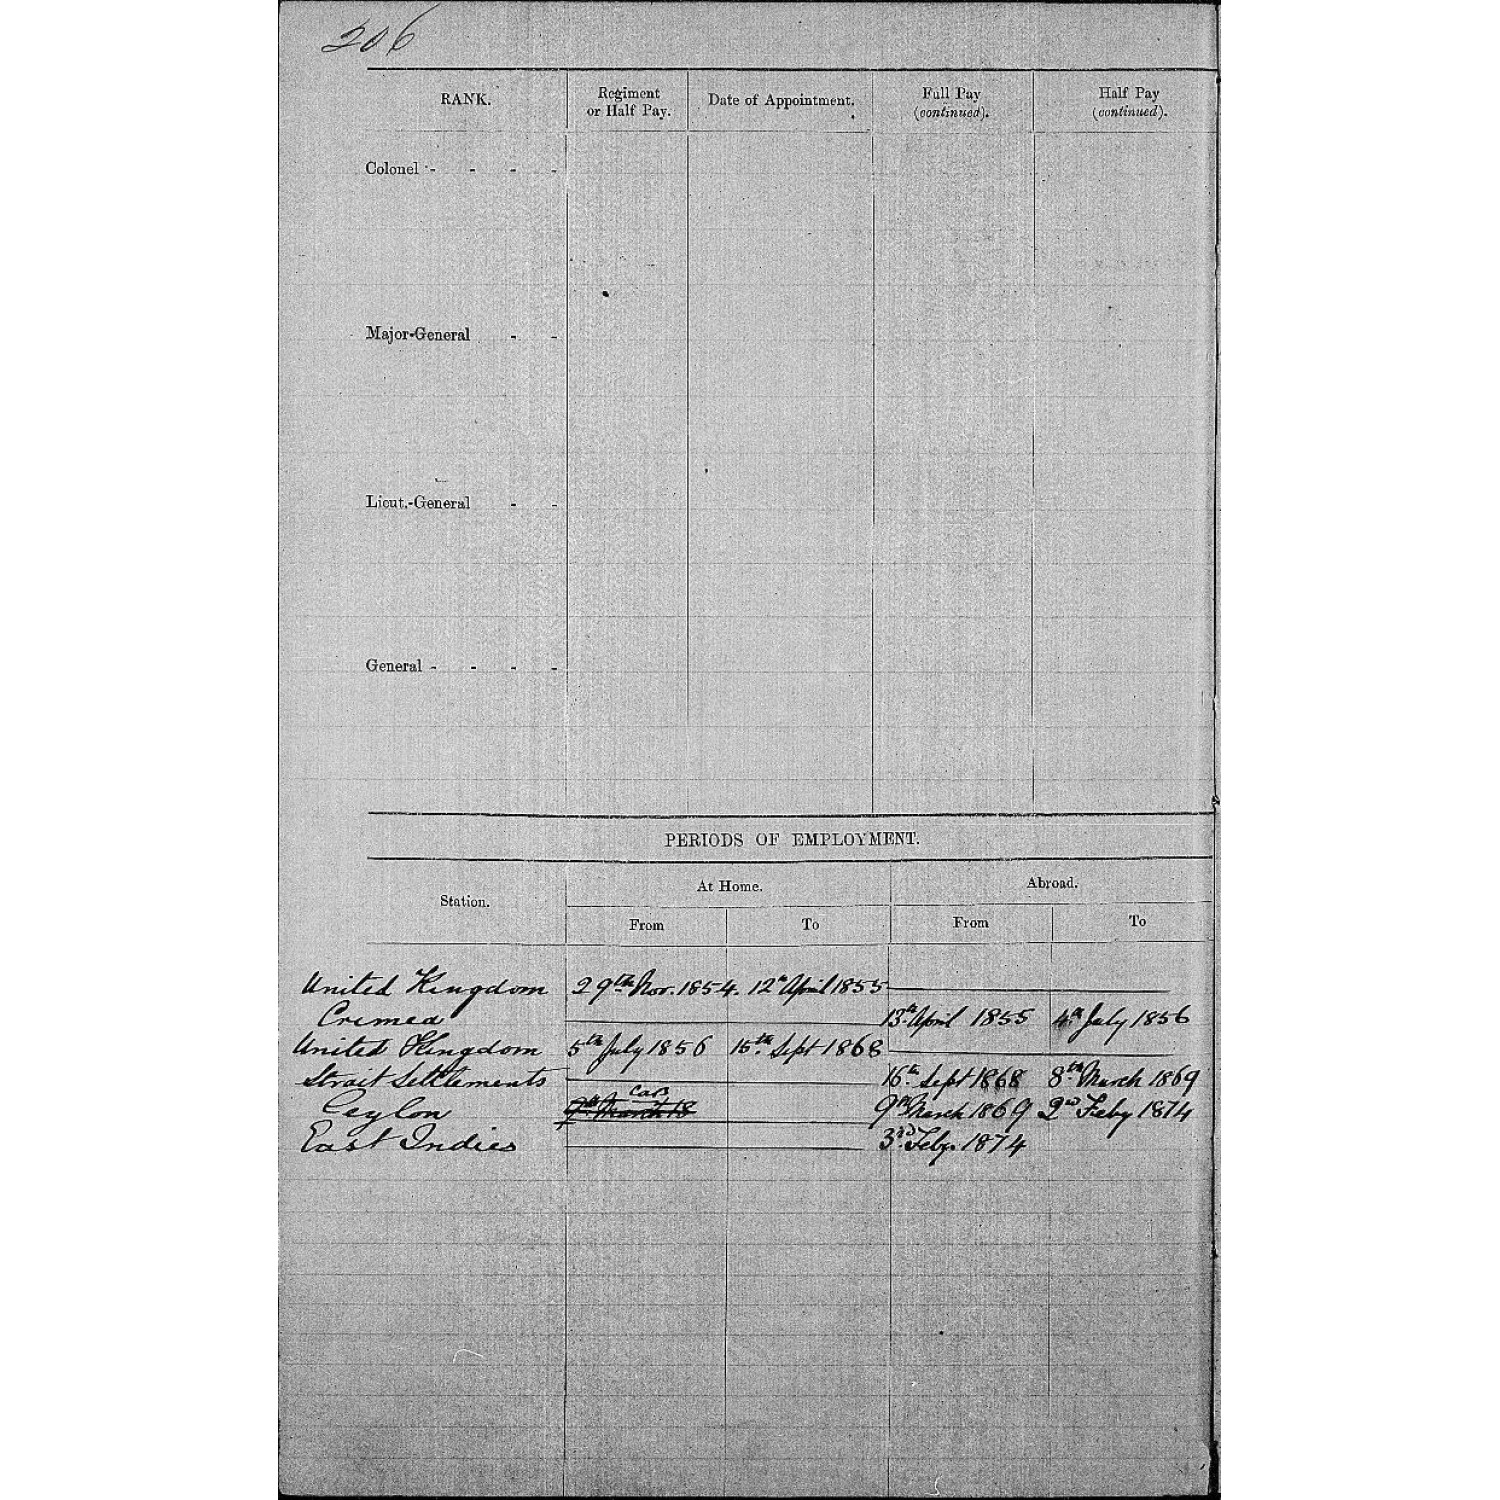 206
RANK. Regiment or Half Pay. Date of Appointment. Full Pay (continued). Half Pay (continued).
Colonel - - - -
Major-General - -
Lieut.-General - -
General - - - -
PERIODS OF EMPLOYMENT.
Station. At Home. Abroad.
From To From To
United Kingdom 29th Nov. 1854. 12th April 1855
Crimea 13th April 1855 4th July 1856
United Kingdom 5th July 1856 15th Sept 1868
Strait Settlements 16th Sept 1868 8th March 1869
Ceylon 9th March 18 9th March 1869 2nd Feby 1874
East Indies 3rd Feby. 1874